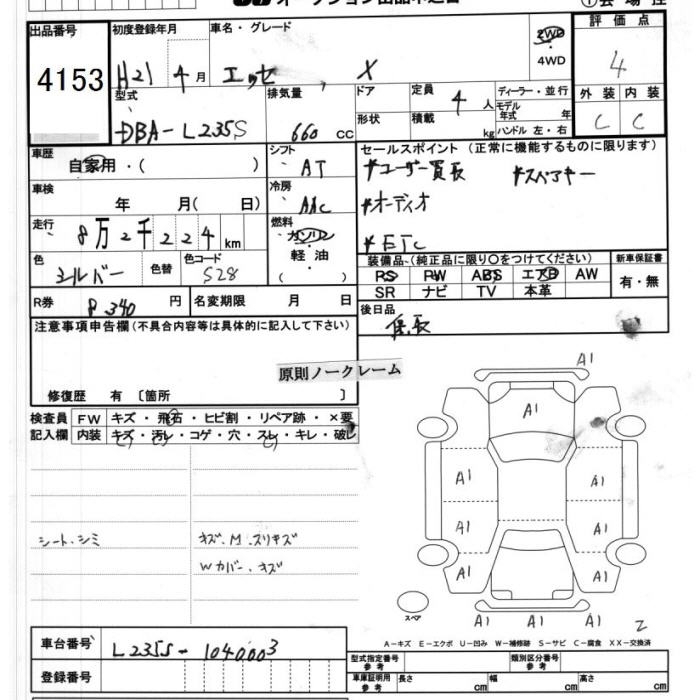 出品番号 初度登録年月 車名・グレード ①会場控
評価点
4153 H21年4月 エッセ X 2WD 4
4WD
型式 排気量 ドア 定員 4人 ディーラー・並行 外装 内装
モデル年式 年
DBA-L235S 660cc 形状 積載 kg ハンドル 左・右 C C
車歴 自家用・( ) シフト AT セールスポイント(正常に機能するものに限ります)
*ユーザー買長 *スペアキー
車検 年 月( 日) 冷房 AAC *オーディオ
走行 8万2千224km 燃料 ガソリン *ETC
軽油
( )
色 シルバー 色替 色コード S28 装備品(純正品に限り〇をつけてください) 新車保証書
PS PW ABS エアB AW 有・無
SR ナビ TV 本革
R券 8340円 名変期限 月 日 後日品
注意事項申告欄(不具合内容等は具体的に記入して下さい) 保,長
原則ノークレーム
修復歴 有 〔箇所 〕
検査員 FW キズ・飛石・ヒビ割・リペア跡・×要
記入欄 内装 キズ・汚レ・コゲ・穴・スレ・キレ・破レ
A1
A1
A1 A1
A1 A1
A1 A1
A1 A1 A1
シート.シミ キズ.M.スリキズ
Wカバー.キズ
スペア
2
A-キズ E-エクボ U-凹み W-補修跡 S-サビ C-腐食 XX-交換済
車台番号 L235S-1040003
型式指定番号 参考 類別区分番号 参考
登録番号 車庫証明用 参考 長さ cm 幅 cm 高さ cm